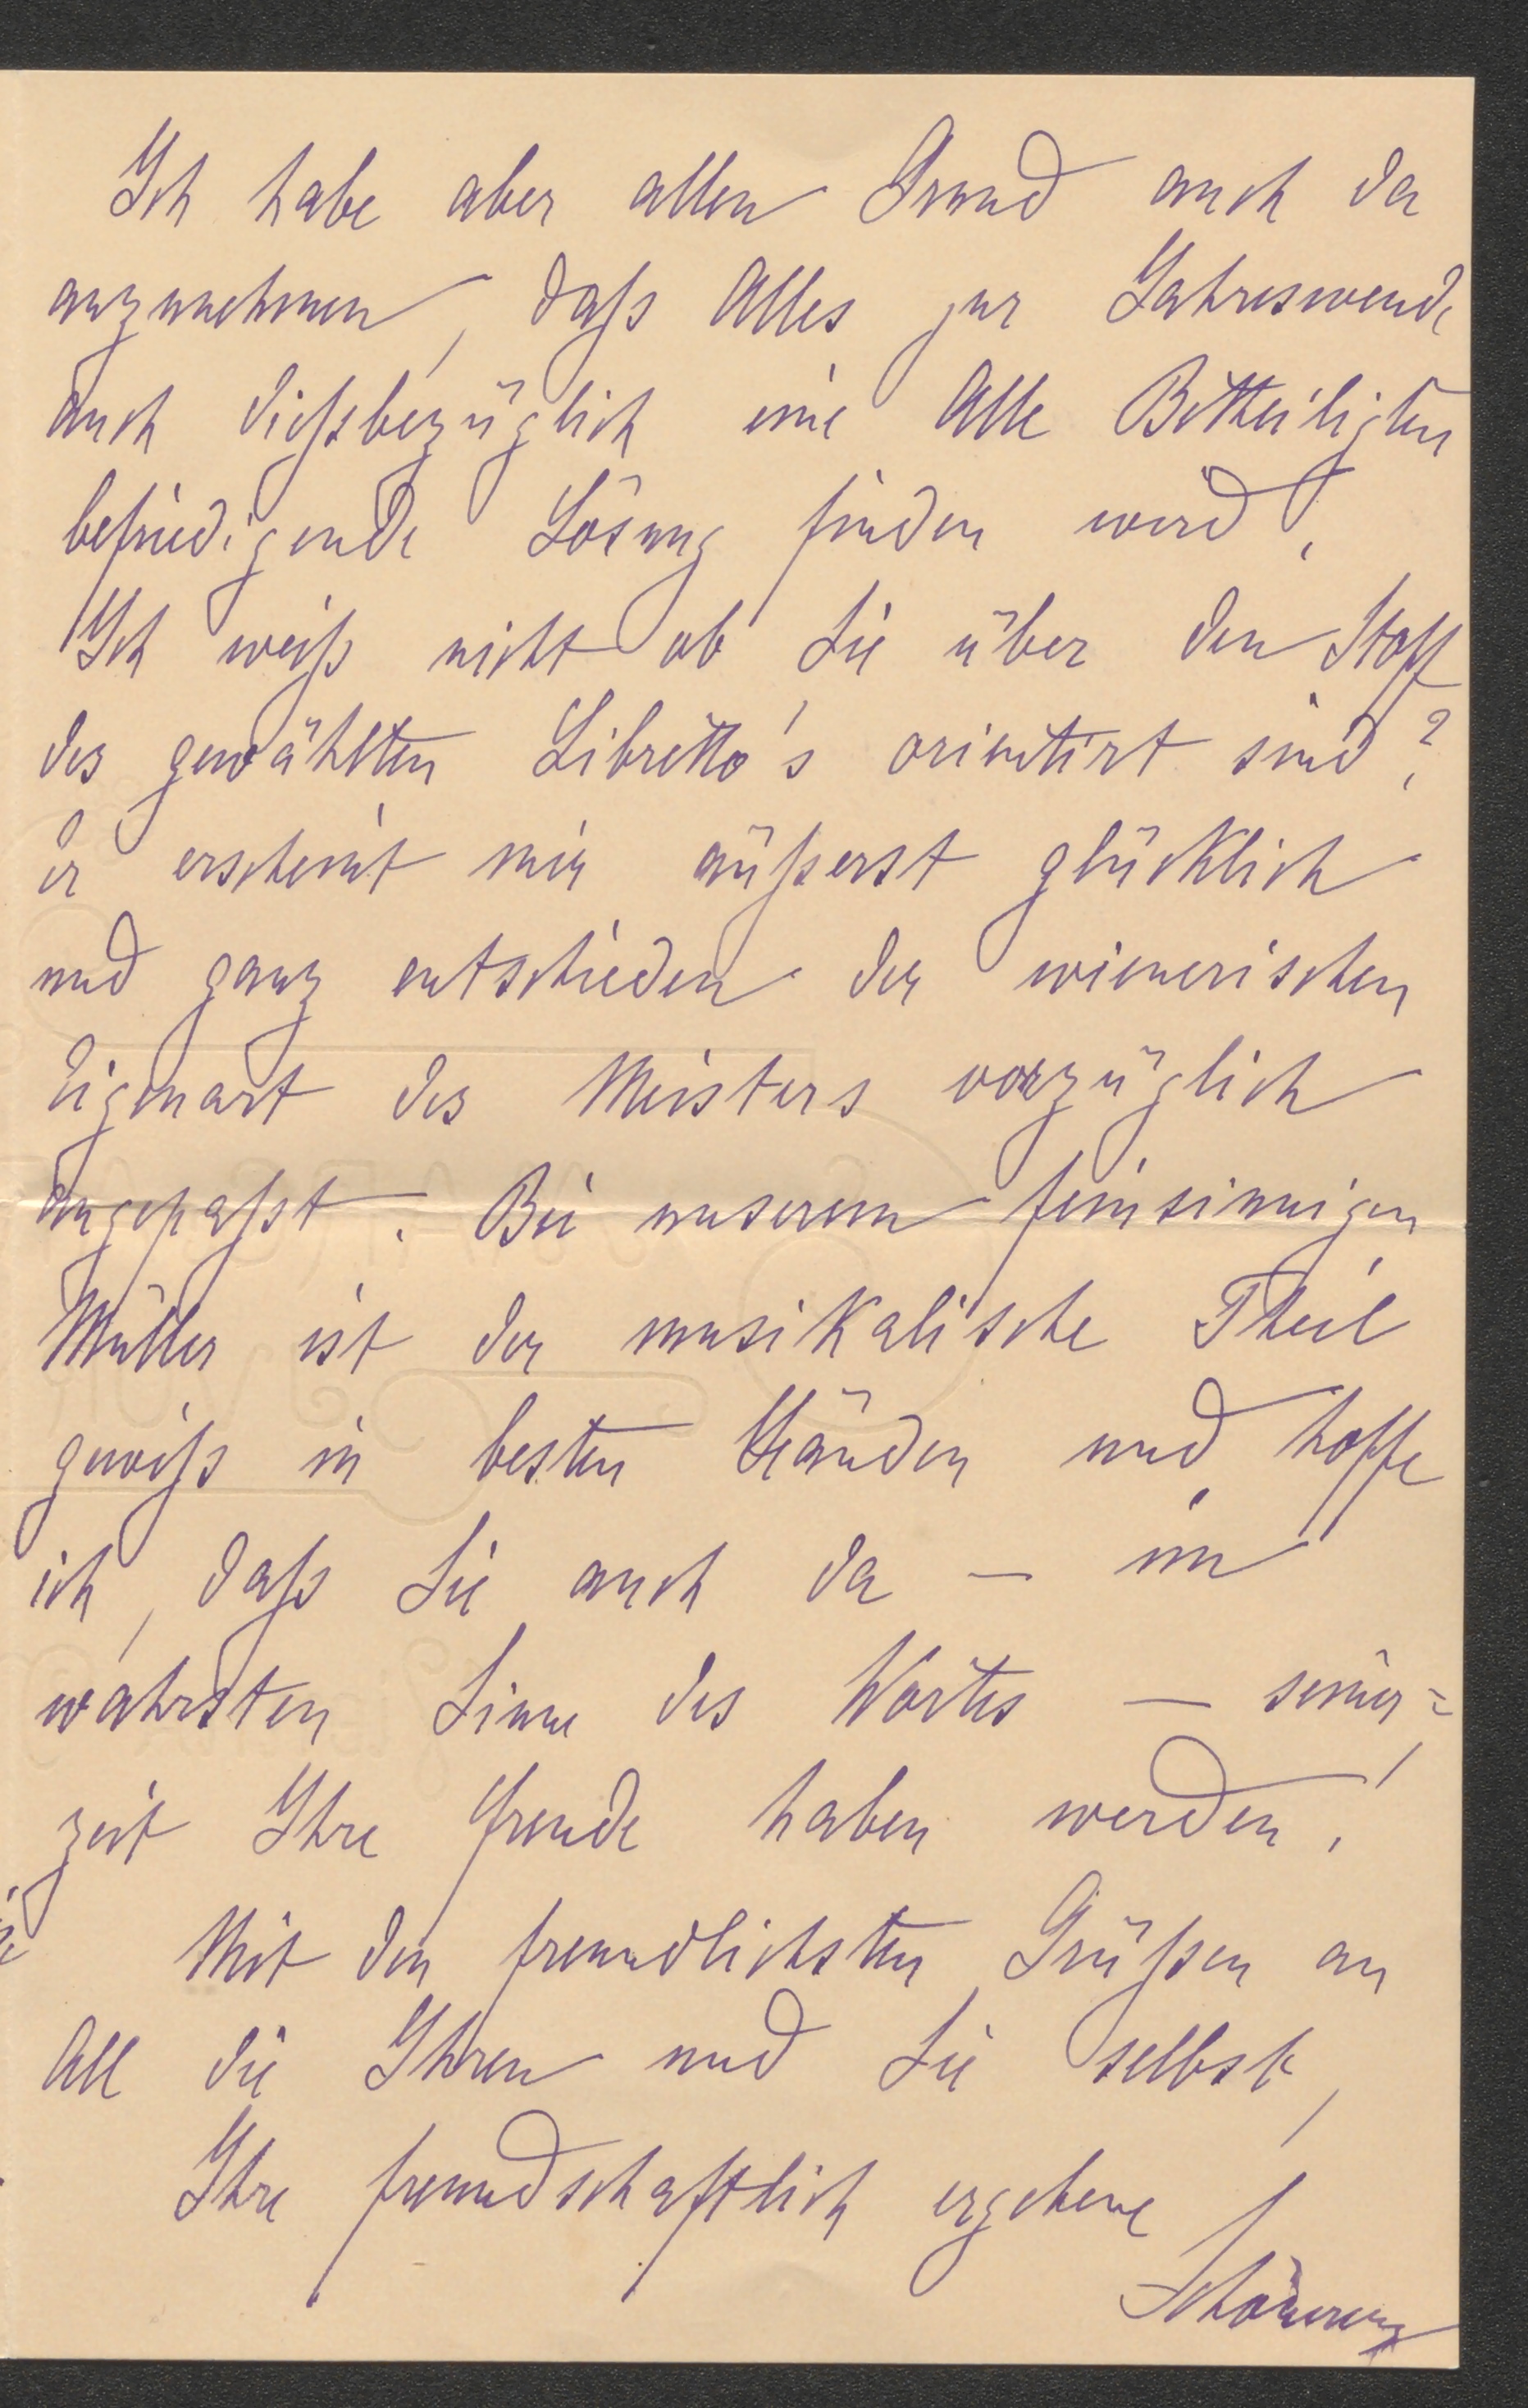 Ich habe aber allen Grund auch da
anzunehmen, daß Alles zur Jahreswende
auch dießbezüglich eine Alle Betheiligten
befriedigende Lösung finden wird.
Ich weiß nicht ob Sie über den Stoff
des gewählten Libretto's orientirt sind?
Er erscheint mir äußerst glücklich
und ganz entschieden der wienerischen
Eigenart des Meisters vorzüglich
angepaßt. Bei unserem feinsinnigen
Müller ist der musikalische Theil
gewiß in besten Händen und hoffe
ich, daß Sie auch da — im
wahrsten Sinne des Wortes — seiner=
zeit Ihre Freude haben werden!
Mit den freundlichsten Grüßen an
All die Ihren und Sie selbst,
Ihre freundschaftlich ergebene